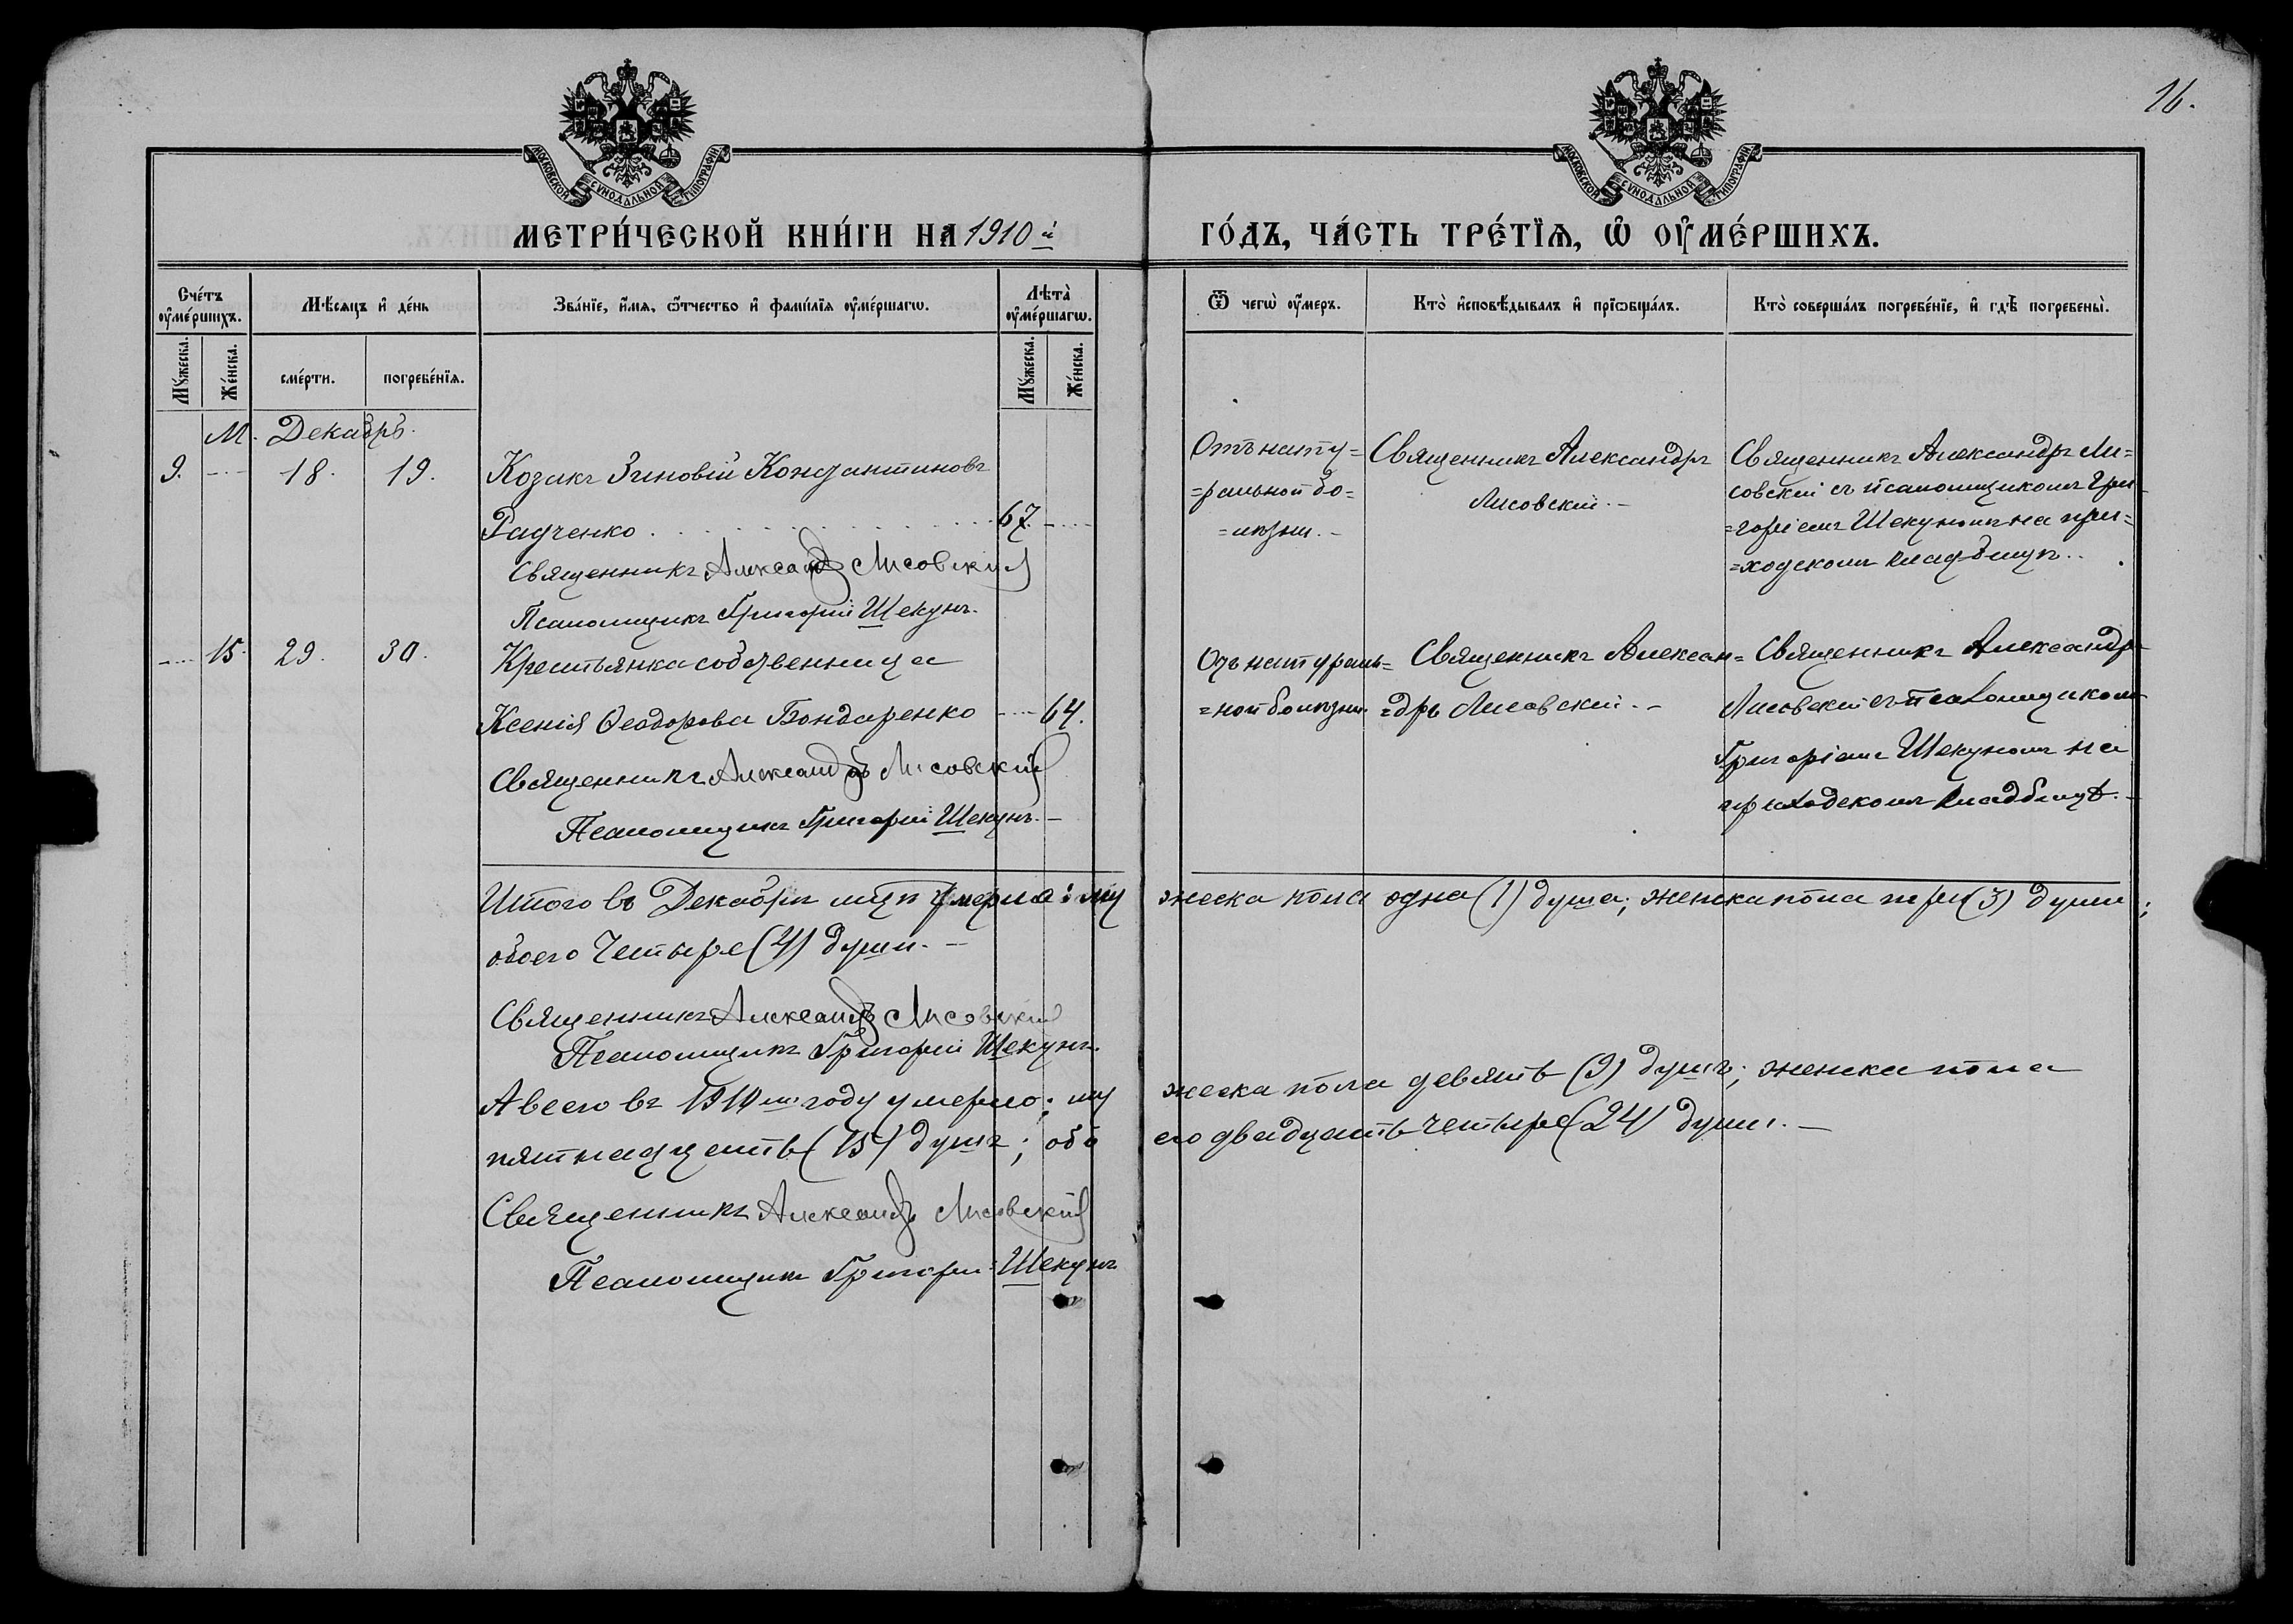 16.
МОСКОВСКОЙ СУНОДАЛЬНОЙ ТИПОГРАФІИ
МОСКОВСКОЙ СУНОДАЛЬНОЙ ТИПОГРАФІИ
МЕТРИ́ЧЕСКОЙ КНИ́ГИ НА 1910й
ГО́ДЪ, ЧА́СТЬ ТРЕ́ТЇѦ, Ѡ҆ ОУ҆МЕ́РШИХЪ.
Сче́тъ оу҆ме́ршихъ.
Мѣ́сѧцъ и҆ де́нь
Зва́нїе, и҆́мѧ, ѻ҆́тчество и҆ фами́лїѧ оу҆ме́ршагѡ.
Лѣта̀ оу҆ме́ршагѡ.
Ѿ чегѡ̀ оу҆́меръ.
Кто̀ и҆сповѣ́дывалъ и҆ прїѡбща́лъ.
Кто̀ соверша́лъ погребе́нїе, и҆ гдѣ̀ погребены̀.
Мꙋ́жеска.
Же́нска.
сме́рти.
погребе́нїѧ.
Мꙋ́жеска.
Же́нска.
М. Декабрь.
9. 18. 19. Козакъ Зиновій Константиновъ
Радченко 67.
Священникъ Александръ Лисовскій
Псаломщикъ Григорій Шекунъ.
Отъ нату=
=ральной бо=
=лѣзни.
Священникъ Александръ
Лисовскій.
Священникъ Александръ Ли=
совскій съ псаломщикомъ Гри
=горіемъ Шекуномъ на при=
=ходскомъ кладбищѣ.
15. 29. 30. Крестьянка собственница
Ксенія Ѳеодорова Бондаренко 64.
Священникъ Александръ Лисовскій
Псаломщикъ Григорій Шекунъ.
Отъ натураль=
=ной болѣзни.
Священникъ Алексан=
=дръ Лисовскій.
Священникъ Александръ
Лисовскій съ псаломщикомъ
Григоріемъ Шекуномъ на
приходскомъ кладбищѣ.
Итого въ Декабрѣ мцѣ умерло: му жеска пола одна (1) душа; женска пола три (3) души;
обоего четыре (4) души.
Священникъ Александръ Лисовскій
Псаломщикъ Григорій Шекунъ.
А всего въ 1910мъ году умерло: му жеска пола девять (9) душъ; женска пола
пятнадцать (15) душъ; обо его двадцать четыре (24) души.
Священникъ Александръ Лисовскій
Псаломщикъ Григорій Шекунъ